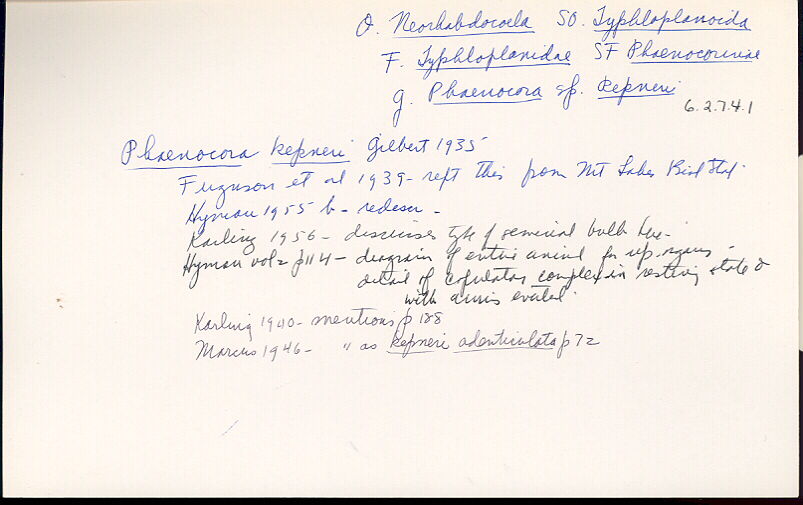 O. Neorhabdocoela SO. Typhloplanoida
F. Typhloplanidae SF Phaenocorinae
g. Phaenocora sp. kepneri
6.2.7.4.1
Phaenocora kepneri Gilbert 1935
Ferguson et al 1939 - rept this from Mt Lake Biol Stat.
Hyman 1955 b - redescr -
Karling 1956 - discusses type of seminal bulb here -
Hyman vol 2 p 114 - diagram of entire animal for rep. organs -
detail of copulatory complex in resting state &
with cirrus everted.
Karling 1940 - mentions p 128
Marcus 1946 - " as kepneri adenticulata p 72